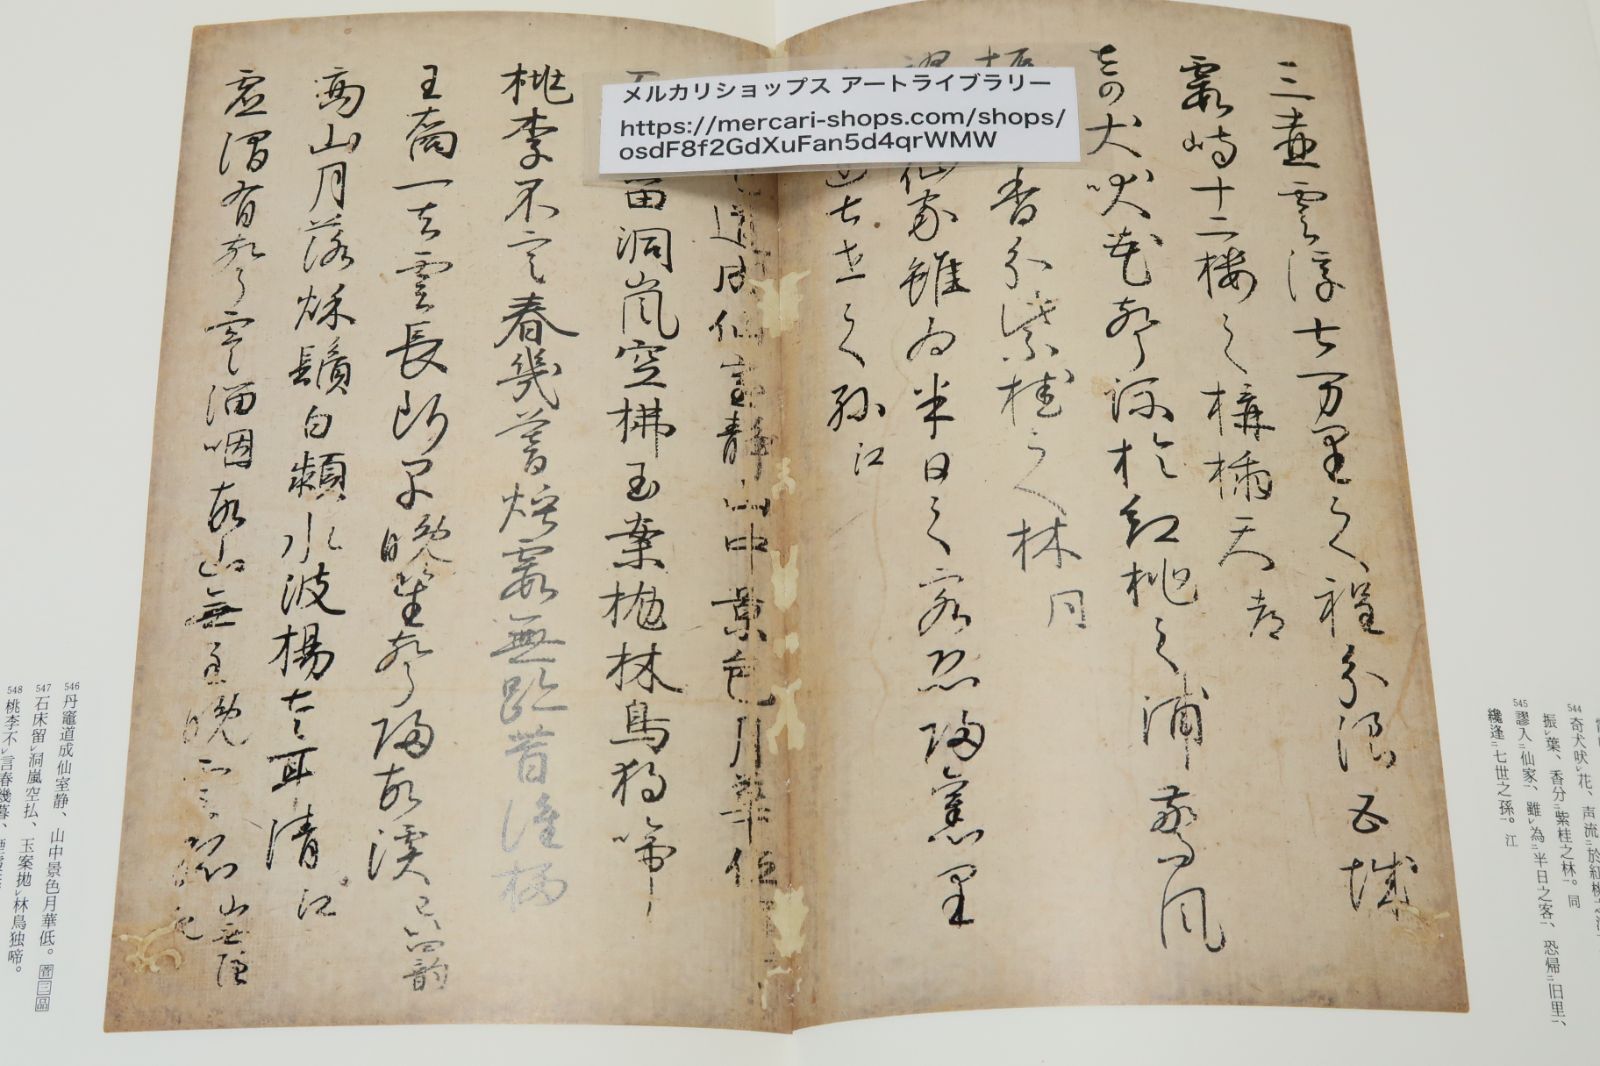 メルカリショップス アートライブラリー
https://mercari-shops.com/shops/
osdF8f2GdXuFan5d4qrWMW
三壺雲浮七万里之程分浪五城
霞峙十二楼之構挿天 都
奇犬吠花声流於紅桃之浦驚風
香分紫桂之林 同
仙家雖為半日之客恐帰旧里
七世之孫 江
道成仙室静山中景色月華低
留洞嵐空拂玉案抛林鳥独啼
桃李不言春幾暮煙霞無跡昔誰栖
王喬一去雲長断早晩笙声帰故渓 已上四韻
商山月落秋鬚白潁水波揚左耳清 江
虚澗有声寒溜咽故山無主晩雲孤 山無隠 紀
544 奇犬吠レ花、声流二於紅桃之
振レ葉、香分二紫桂之林一。同
545 謬入二仙家一、雖レ為二半日之客一、恐帰二旧里一、
纔逢二七世之孫一。江
546 丹竈道成仙室静、山中景色月華低。菅三品
547 石床留レ洞嵐空払、玉案抛レ林鳥独啼。
548 桃李不レ言春幾暮、